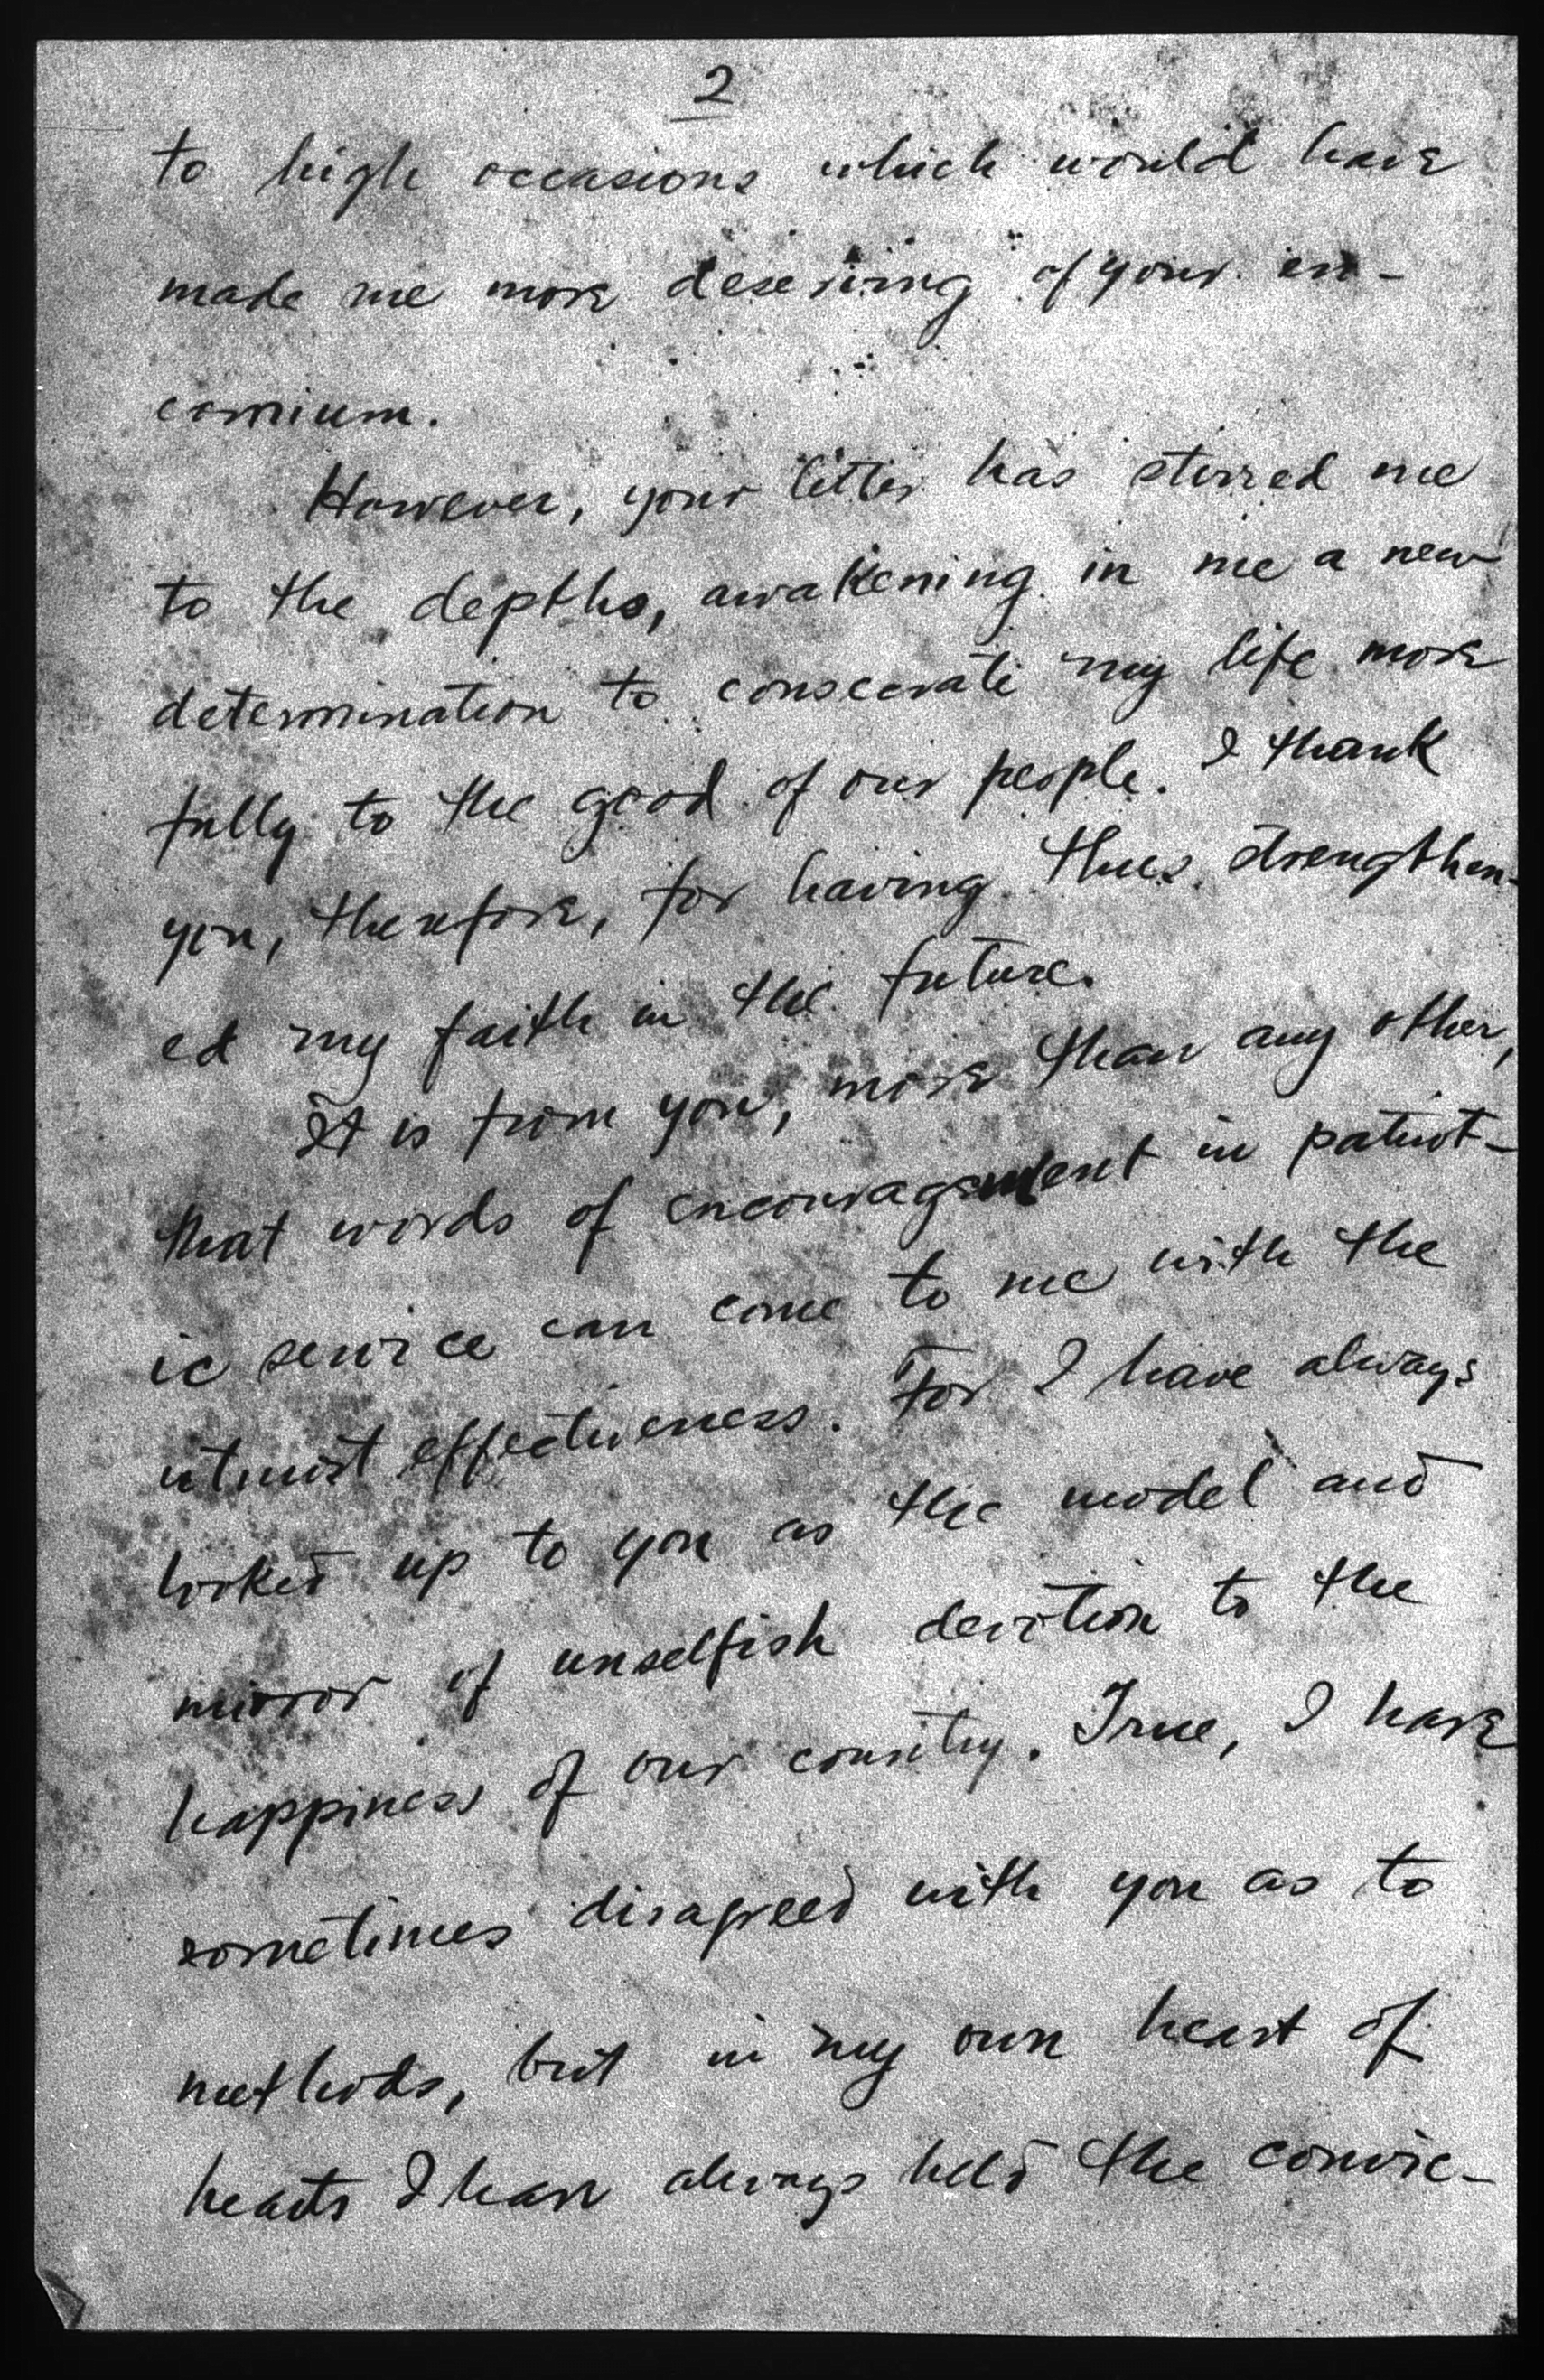 2
to high occasions which would have
made me more deserving of your en-
comium.
However, your letter has stirred me
to the depths, awakening in me a new
determination to consecrate my life more
fully to the good of our people. I thank
you, therefore, for having thus strengthen-
ed my faith in the future.
It is from you, more than any other,
that words of encouragement in patriot-
ic service can come to me with the
utmost effectiveness. For I have always
looked up to you as the model and
mirror of unselfish devotion to the
happiness of our country. True, I have
sometimes disagreed with you as to
methods, but in my own heart of
hearts I have always held the convic-